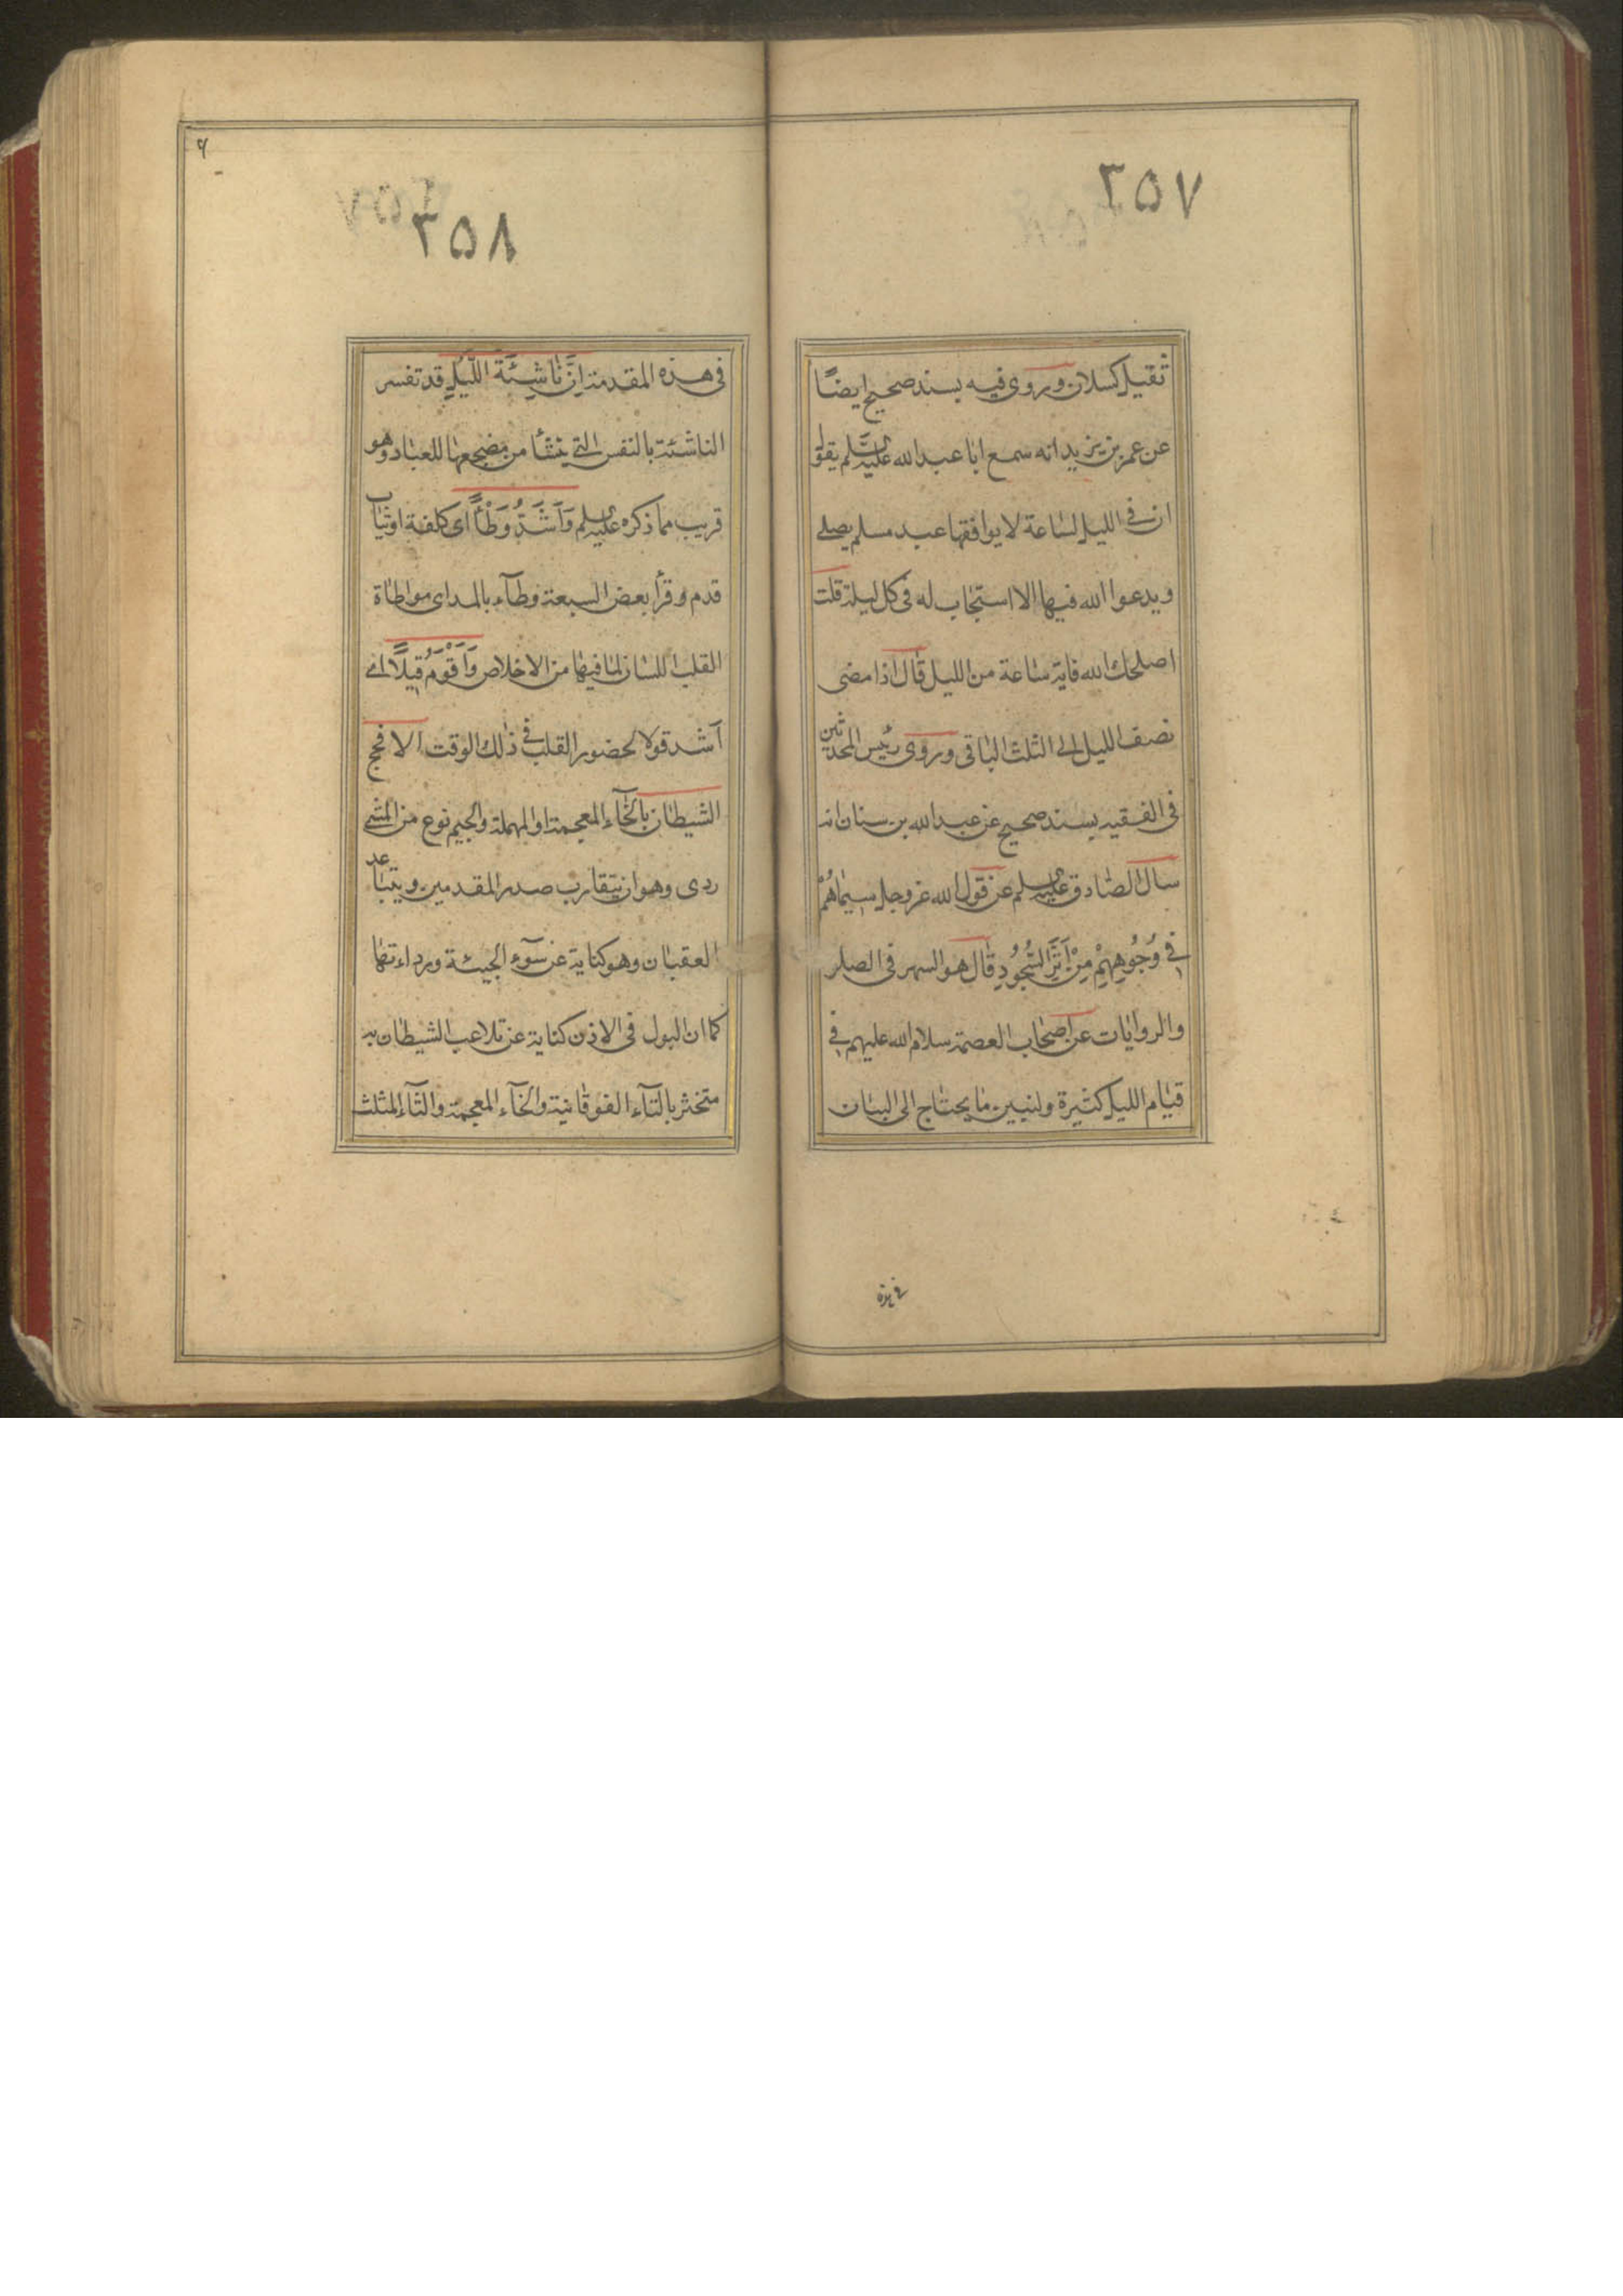 ٣٥٧
ثقيل كسلان وروى فيه بسند صحيح ايضًا
عن عمر بن يزيد انه سمع ابا عبد الله عليه السلم يقول
ان في الليل لساعة لا يوافقها عبد مسلم يصلى
ويدعوا الله فيها الا استجاب له فى كل ليلة قلت
اصلحك الله فاية ساعة من الليل قال اذا مضى
نصف الليل الى الثلث الباقى وروى رئيس المحدثين
فى الفقيه بسند صحيح عن عبد الله بن سنان انه
سال الصادق عليه السلم عن قول الله عز وجل سِيمَاهُمْ
فِى وُجُوهِهِمْ مِنْ اَثَرِ السُّجُودِ قال هو السهر فى الصلو
والروايات عن اصحاب العصمة سلام الله عليهم فى
قيام الليل كثيرة ولنبين ما يحتاج الى البيان
فى هذه
٣٥٨
فى هذه المقدمة اِنَّ نَاشِئَةَ اللَّيْلِ قد تفسر
الناشئة بالنفس التى تنشأ من مضجعها للعبادة وهو
قريب مما ذكره عليه السلم وَاَشَدُّ وَطْأً اى كلفة او ثبات
قدم وقرأ بعض السبعة وطآء بالمد اى مواطاة
القلب اللسان لما فيها من الاخلاص وَاَقْوَمُ قِيلًا اى
اشد قولا لحضور القلب فى ذلك الوقت الا فحج
الشيطان بالخآء المعجمة او المهملة والجيم نوع من المشى
ردى وهو ان يتقارب صدر المقدمين ويتباعد
العقبان وهو كناية عن سوٓء الجيئة ورداءتها
كما ان البول فى الاذن كناية عن تلاعب الشيطان به
متخثر بالتآء الفوقانية والخآء المعجمة والثآء المثلث